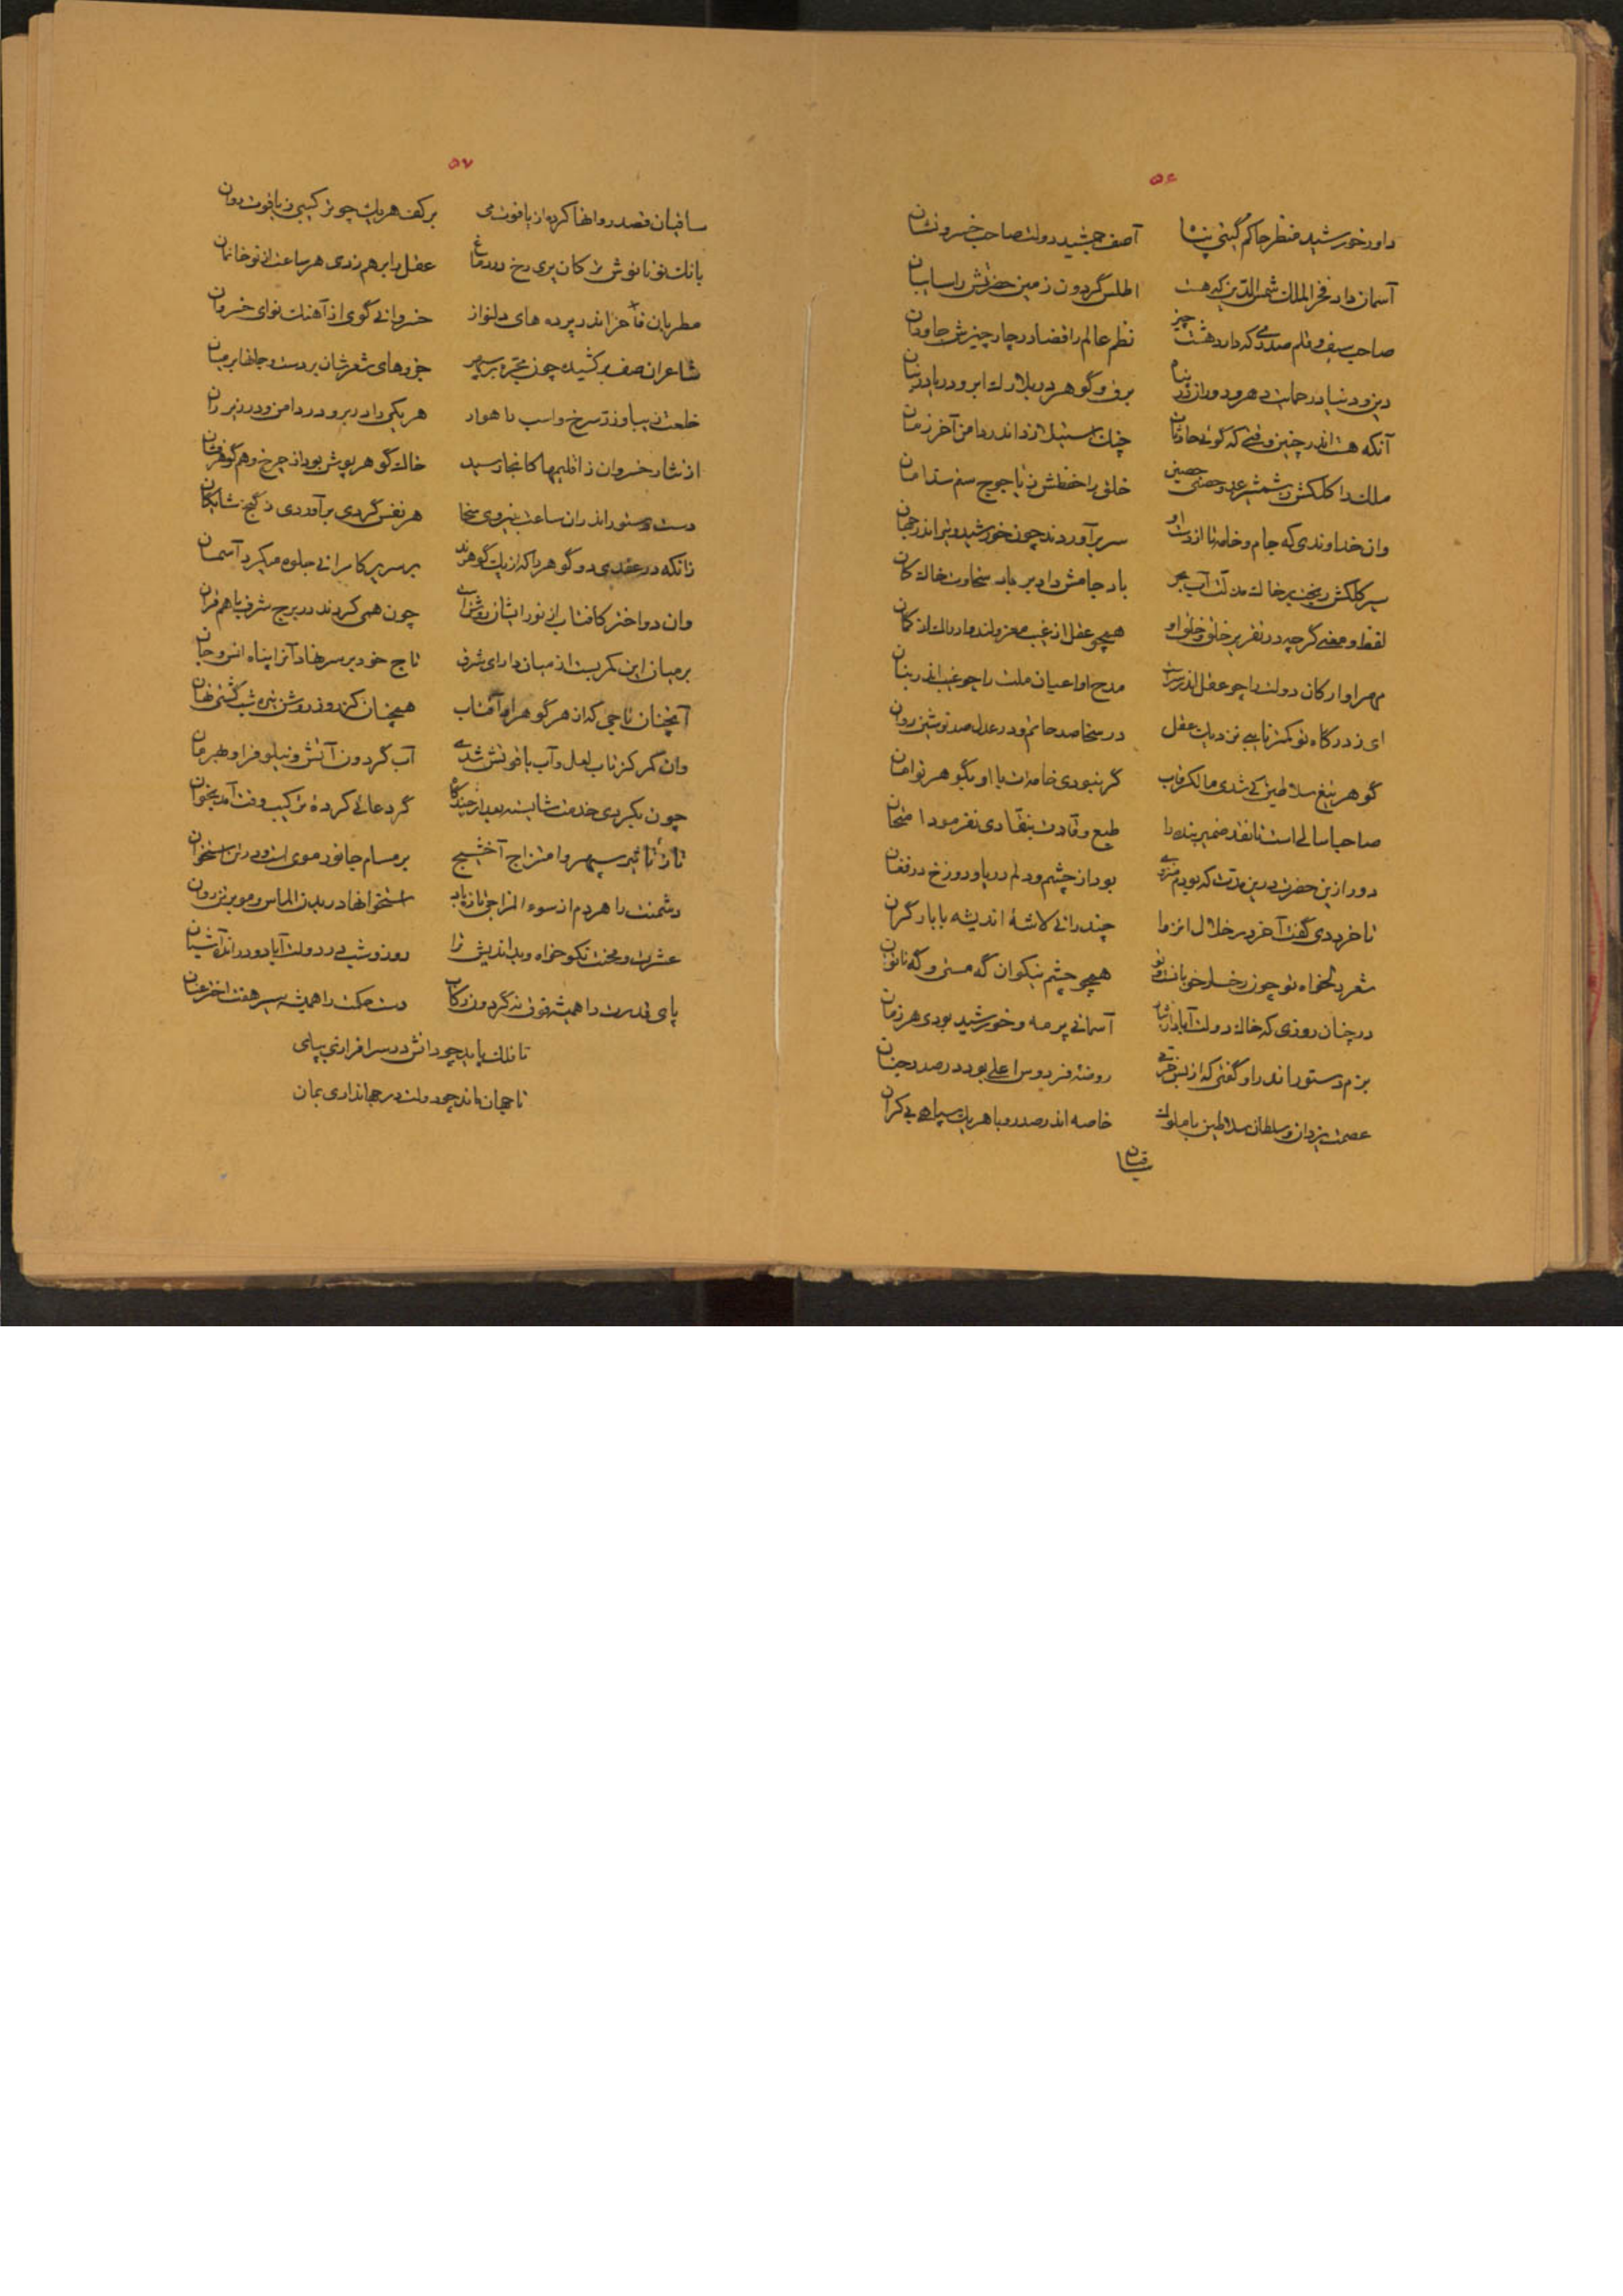 ۵۶
داور خورشید منظر حاکم گیتی پناه آصف جمشید دولت صاحب خسرو نشان
آسمان داد فخر الملک شمس الدین که هست اطلس گردون زمین حضرتش را سایبان
صاحب سیف و قلم صدری که دارد هشت چیز نظم عالم را قضا در چار چیزش جاودان
دین و دنیا در حمایت دهر و دور اندر پناه برق و گوهر در بلارک ابر و دریا در بنان
آنکه هست اندر چنین وقتی که گوئی حادثات چنگ استیلا زد اندر دامن آخر زمان
ملک را کلکش ز شمشیر عدو حصنی حصین خلق را حفظش ز یاجوج ستم سد امان
وان خداوندی که جام و خامه تا از دست او سر برآوردند چون خورشید و تیر اندر جهان
سیر کلکش ریخت بر خاک مذلت آب بحر باد جامش داد بر باد سخاوت خاک کان
لفظ او معنی گرچه در تقریر خلق و خلق او همچو عقل از غیب معزولند و ادراک از کمان
مهر او ارکان دولت را چو عقل اندر سرست مدح او اعیان ملت را چو غیب اندر بنان
ای ز درگاه تو کمتر نایبی نزدیک عقل در سخا صد حاتم و در عدل صد نوشین روان
گوهر تیغ سلاطین کی شدی مالک رقاب گر نبودی خامه‌ات با او بگوهر توامان
صاحبا سالی است تا نقد ضمیر بنده را طبع وقادت بنقادی نفرمود امتحان
دور ازین حضرت درین مدت که بودم منزوی بود از چشم و دلم دریا و دوزخ در فغان
تا خرد دی گفت آخر در خلال انزوا چند رانی لاشهٔ اندیشه با بار گران
شعر دلخواه تو چون رخسار خوبان همچو چشم نیکوان گه مست و گه ناتوان
در چنان روزی که خاک دولت آباد آسمانی پر مه و خورشید بودی هر زمان
بزم دستور اندر او گفتی که از بس خرمی روضه فردوس اعلی بود در صدر جنان
عصمت یزدان و سلطان سلاطین با ملوک خاصه اندر صدر و با هر یک سپاهی بی کران
ساقیان
۵۷
ساقیان قصد روانها کرده از یاقوت می بر کف هر یک چو ترکیبی ز یاقوت روان
بانک نوشا نوش ترکان پری رخ در دماغ عقل را بر هم زدی هر ساعتی از نو خانمان
مطربان فاخر اندر پرده های دلنواز خسروانی گوی از آهنگ نوای خسروان
شاعران صف برکشیده چون مجره بر سپهر جزوهای شعرشان بر دست و جانها بر میان
خلعت زیبا و زر سرخ و اسب راهوار هر یکی را در بر و در دامن و در زیر ران
از نثار خسروان ز اقلیمها کانجا رسید خاک گوهر پوش بود از چرخ و هم گوهر فشان
دست دستور اندران ساعت بنیروی سخا هر نفس گردی برآوردی ز گنج شایگان
زانکه در عقدی دو گوهر را که از یک گوهرند بر سریر کامرانی جلوه میکرد آسمان
وان دو اختر کافتاب از نور ایشان روشن است چون همی کردند در برج شرف با هم قران
بر میان این کمر بست از میان دارای شرق تاج خود بر سر نهاد آنرا پناه انس و جان
آنچنان تاجی که از هر گوهر او آفتاب همچنان کز روز روشن تیره شب گشتی نهان
وان کمر کز تاب لعل و آب یاقوتش شدی آب گردون آتش و نیلوفر او بهرمان
چون بکردی خدمت شایسته بعد از چندگاه گر دعائی کردهٔ ترکیب وقت آمد بخوان
تا ز تأثیر سپهر و امتزاج آخشیج بر مسام جانور موی است و در تن استخوان
دشمنت را هر دم از سوء المزاجی تازه باد استخوانها در بدن الماس و مو بر تن روان
عشرت و محنت نکو خواه و بداندیش ترا روز و شب در دولت آباد و در اند آشیان
پای قدرت را همیشه فوق نه گردون رکاب دست حکمت را همیشه سیر هفت اختر عنان
تا فلک پاید چو دانش در سرافرازی بپای
تا جهان ماند چو دولت در جهانداری بمان